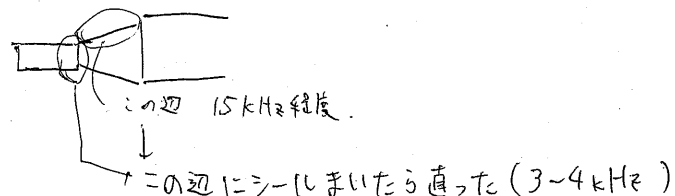 この辺 15kHz程度.
この辺にシールまいたら直った(3~4kHz)